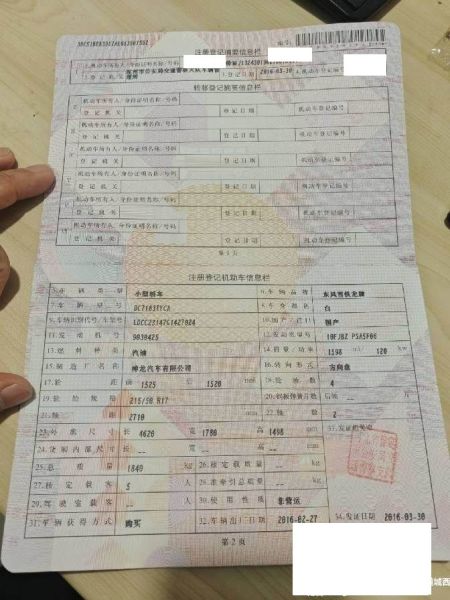 注册登记摘要信息栏
2016-03-30
转移登记摘要信息栏
机动车所有人/身份证明名称/号码
登记机关 登记日期 机动车登记编号
机动车所有人/身份证明名称/号码
登记机关 登记日期 机动车登记编号
机动车所有人/身份证明名称/号码
登记机关 登记日期 机动车登记编号
机动车所有人/身份证明名称/号码
登记机关 登记日期 机动车登记编号
机动车所有人/身份证明名称/号码
登记机关 登记日期 机动车登记编号
机动车所有人/身份证明名称/号码
登记机关 登记日期 机动车登记编号
第1页
注册登记机动车信息栏
5.车辆类型 小型轿车 6.车辆品牌 东风雪铁龙牌
7.车辆型号 8.车身颜色 白
9.车辆识别代号/车架号 10.国产/进口 国产
11.发动机号 9030425 12.发动机型号
13.燃料种类 汽油 14.排量/功率 1598 ml/ 120 kw
15.制造厂名称 神龙汽车有限公司 16.转向形式 方向盘
17.轮距 前 1525 后 1520 mm 18.轮胎数 4
19.轮胎规格 215/50 R17 20.钢板弹簧片数 后轴 片
21.轴距 2710 mm 22.轴数 2 33.发证机关章
23.外廓尺寸 长 4620 宽 1780 高 1498 mm
24.货厢内部尺寸 长 -- 宽 -- 高 -- mm
25.总质量 1840 kg 26.核定载质量 -- kg
27.核定载客 5 人 28.准牵引总质量 -- kg
29.驾驶室载客 -- 人 30.使用性质 非营运
31.车辆获得方式 购买 32.车辆出厂日期 2016-02-27 34.发证日期 2016-03-30
第2页